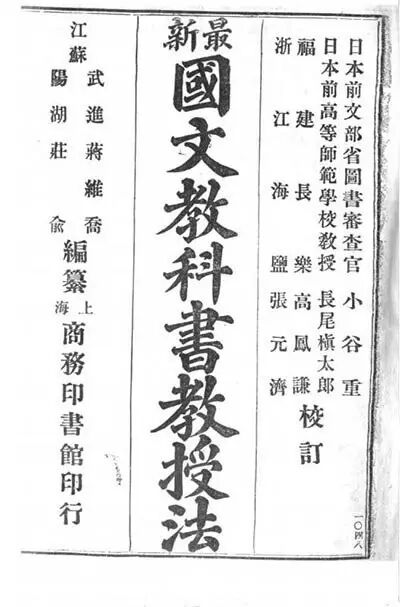 日本前文部省圖書審查官　小谷重
日本前高等師範學校教授　長尾槇太郎
福建長樂高鳳謙
浙江海鹽張元濟
校訂
最新
國文教科書教授法
江蘇
武進蔣維喬
陽湖莊俞
編纂
上海
商務印書館印行
一〇四八